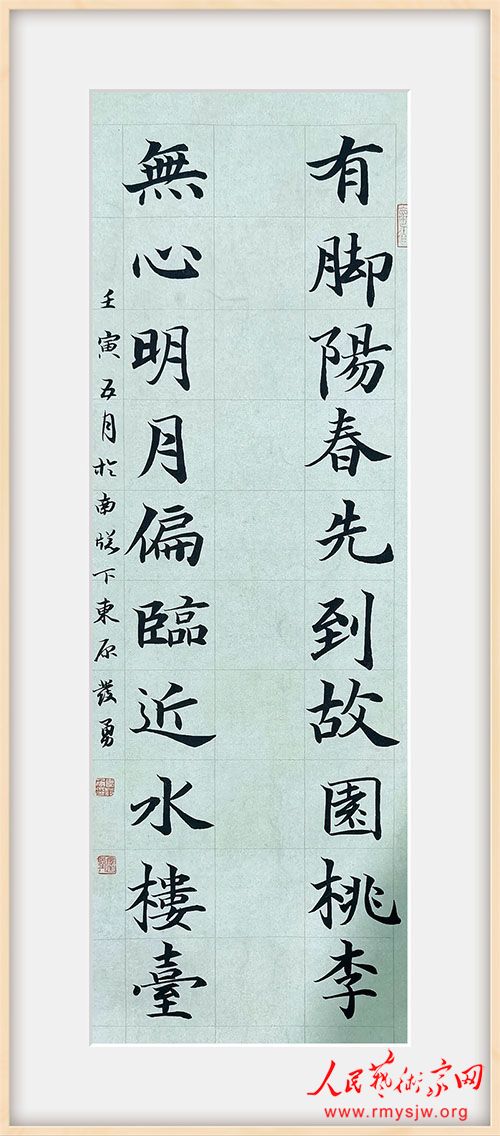 有脚陽春先到故園桃李
無心明月偏臨近水樓臺
壬寅五月於南牕下東原發勇
人民藝術家网
www.rmysjw.org